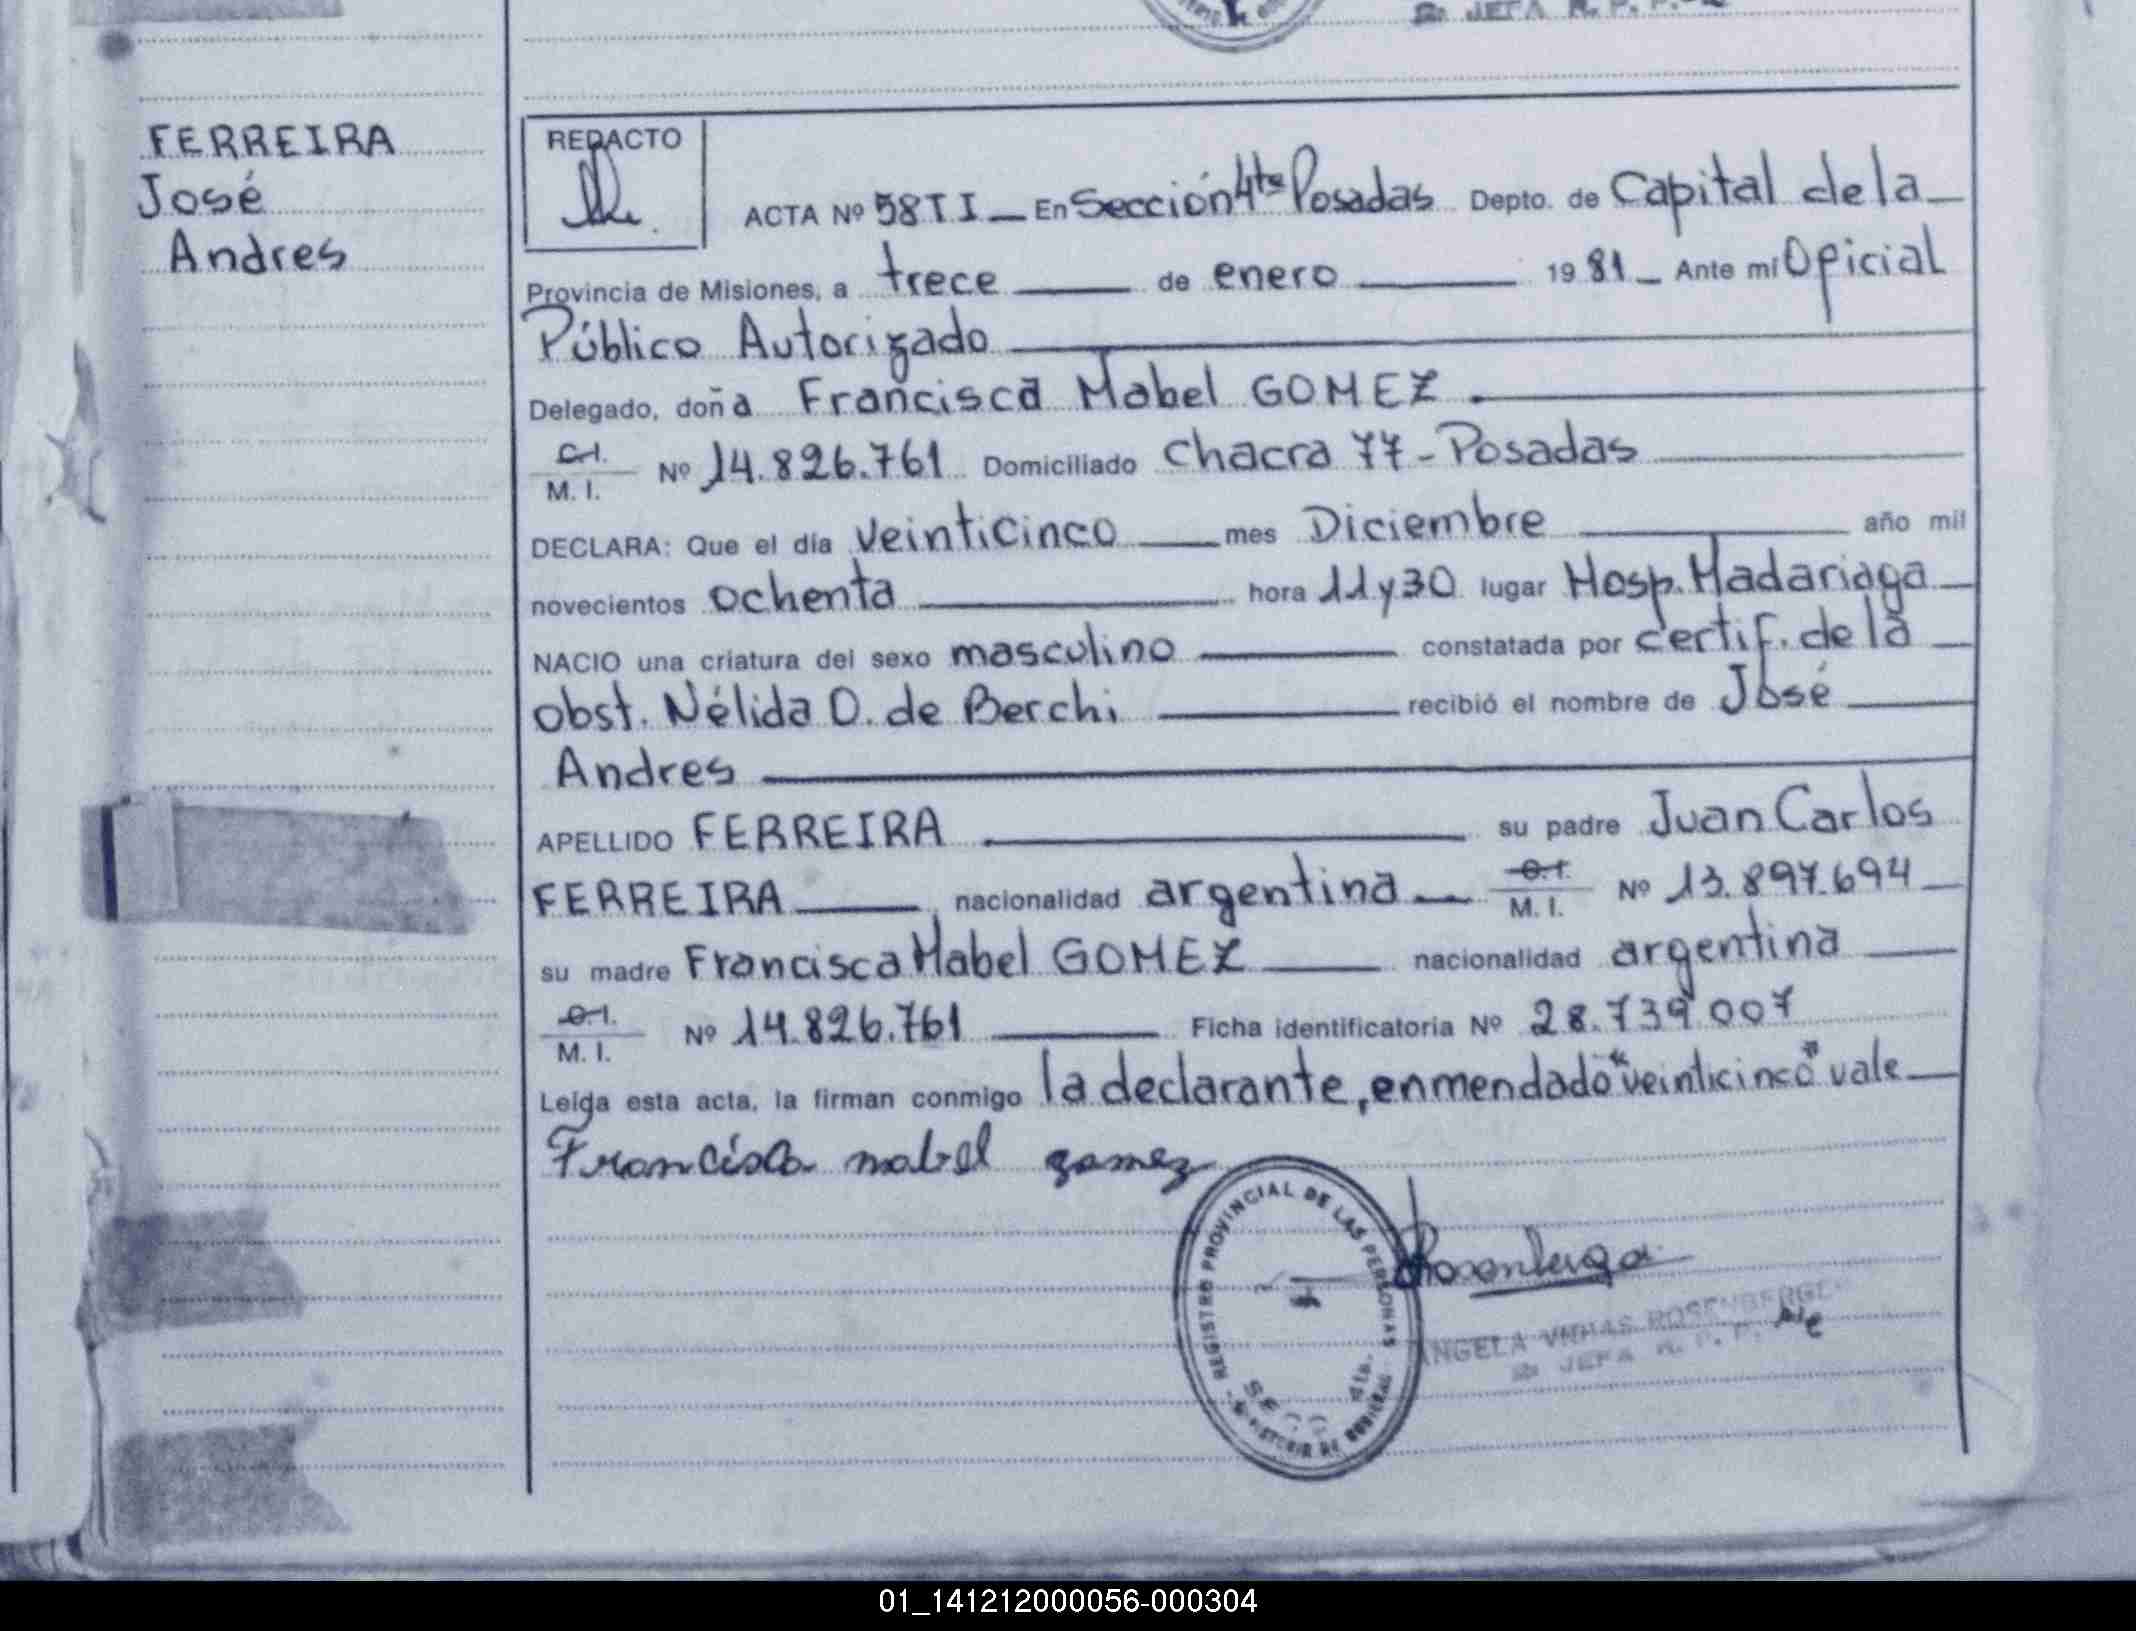 Sa JEFA R. P. P.
FERREIRA
José
Andres
REDACTO
ACTA Nº 58 T I _ En Sección 4ta Posadas Depto. de Capital de la
Provincia de Misiones, a trece de enero 1981 _ Ante mí Oficial
Público Autorizado
Delegado, doña Francisca Mabel GOMEZ
C.I.
M. I.
Nº 14.826.761 Domiciliado Chacra 77 - Posadas
DECLARA: Que el día veinticinco mes Diciembre año mil
novecientos ochenta hora 11 y 30 lugar Hosp. Madariaga
NACIO una criatura del sexo masculino constatada por certif. de la
obst. Nélida O. de Berchi recibió el nombre de José
Andres
APELLIDO FERREIRA su padre Juan Carlos
FERREIRA nacionalidad argentina C.I. M. I. Nº 13.897.694
su madre Francisca Mabel GOMEZ nacionalidad argentina
C.I.
M. I.
Nº 14.826.761 Ficha identificatoria Nº 28.739.007
Leída esta acta, la firman conmigo la declarante, enmendado "veinticinco" vale
Francisca mabel gomez
REGISTRO PROVINCIAL DE LAS PERSONAS
SECC. 4ta.
MINISTERIO DE GOBIERNO
ANGELA ROSENBERGE
Sa JEFA R. P. P.
01_141212000056-000304